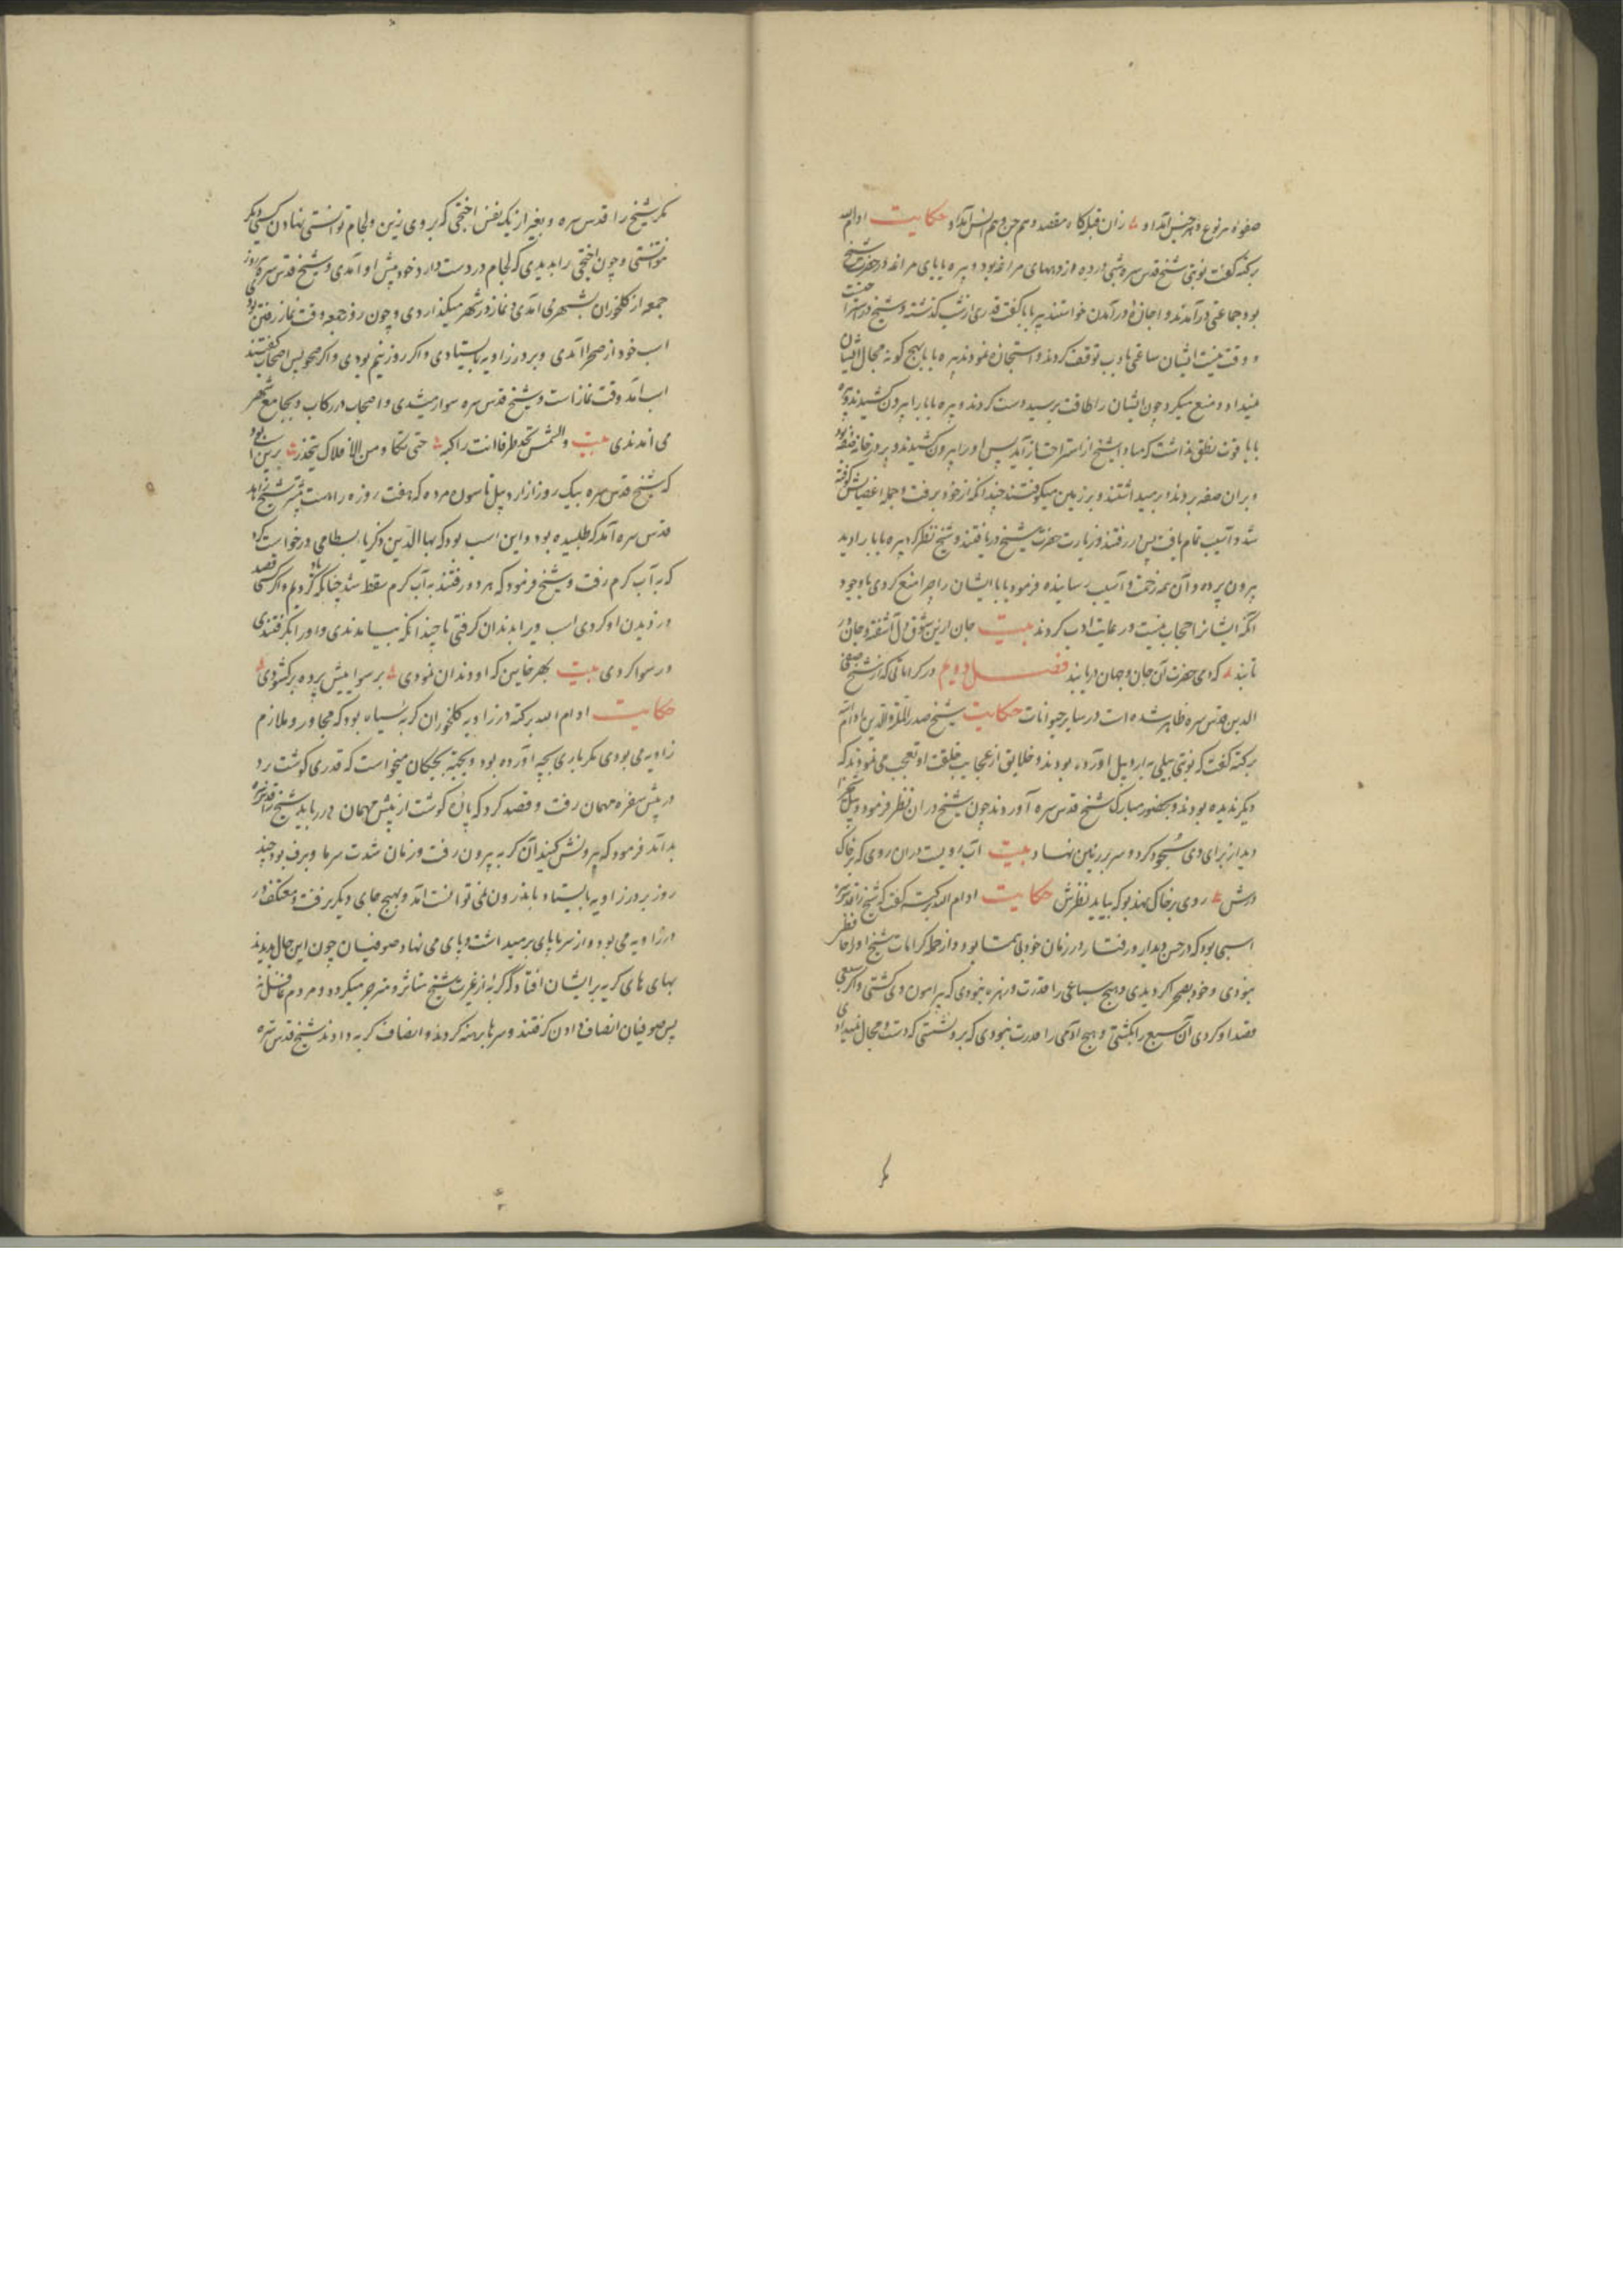 صفوة هر نوع و هر جنس آمد او ؞ زان قبله‌گاه مقصد و هم جن و هم انس آمد او حکایت ادام الله
برکته گفت نوبتی شیخ قدس سره شبی در ده از دیههای مراغه بود و پیره بابای مراغه در حضرت شیخ
بود جماعتی در آمدند و اجازهٔ در آمدن خواستند پیره بابا گفت قدری از شب گذشته و شیخ در استراحتست
و وقت نیست ایشان ساعتی بادب توقف کردند و استجازه نمودند پیره بابا بهیچ گونه مجال ایشان
نمیداد و منع میکرد چون ایشان را طاقت برسید دست کردند و پیره بابا را بیرون کشیدند و پیره
بابا قوت نطق نداشت که مبادا شیخ از استراحت باز آید پس او را بیرون کشیدند و بر در خانه صفه بود
و بر آن صفه بردند و بر میداشتند و بر زمین میکوفتند چندانکه از خود برفت و جمله اعضایش کوفته
شد و آسیب تمام یافت پس در رفتند و زیارت حضرت شیخ دریافتند و شیخ نظر کرد پیره بابا را دید
بیرون برده و آن همه زخمت و آسیب رسانیده فرمود بابا ایشان را چرا منع کردی با وجود
آنکه ایشانرا حجاب نیست و رعایت ادب کردند بیت جان ازین شوق دل آشفته و جان در
تابند ؞ که دمی حضرت آن جان و جهان دریابند فصل دویم در کراماتی که از شیخ صفی
الدین قدس سره ظاهر شده است در سایر حیوانات حکایت شیخ صدر الملة والدین ادام الله
برکته گفت که نوبتی پیلی به اردبیل آورده بودند و خلایق از عجایب خلقت او تعجب می‌نمودند که
دیگر ندیده بودند و بحضور مبارک شیخ قدس سره آوردند چون شیخ در آن نظر فرمود و پیل
دیدار برای وی سجود کرد و سر بر زمین نهاد بیت آب رویست در آن روی که بر خاک
درش ؞ روی بر خاک نهد بو که بیابد نظرش حکایت ادام الله برکته گفت که شیخ را قدس سره
اسبی بود که در حسن دیدار و رفتار در زمان خود بی‌همتا بود و از جمله کرامات شیخ او را حافظ
نبودی و خود بصحرا گردیدی و هیچ سباعی را قدرت و زهره نبودی که پیرامون وی گشتی و اگر سبعی
قصد او کردی آن سبع را بکشتی و هیچ آدمی را قدرت نبودی که برو نشستی که دست و مجال نمیدادی
مگر شیخ را قدس سره و بغیر از یک نفس اخی که بر وی زین و لجام توانستی نهادن کسی دیگر
نتوانستی و چون اخی را بدیدی که لجام در دست دارد خود پیش او آمدی و شیخ قدس سره روز
جمعه از کلخوران بشهر می‌آمدی و نماز در شهر میگذاردی و چون روز جمعه وقت نماز رفتن بودی
اسب خود از صحرا آمدی و بر در زاویه بایستادی و اگر روز نیم بودی و اگر صحو پس اصحاب گفتند
اسب آمد وقت نماز است و شیخ قدس سره سوار شدی و اصحاب در رکاب و بجامع شهر
می‌آمدندی بیت والشمس طرفا انت راکبه ؞ حتی تکاد من الافلاک ؞ برین اسب بود
که شیخ قدس سره بیک روز از اردبیل تا سون مرده که هفت روزه راهست پیش شیخ زاهد
قدس سره آمد که طلبیده بود و این اسب بود که بهاالدین زکریا بسطامی درخواست کرد
که به آب گرم رفت و شیخ فرمود که هر دو رفتند به آب گرم سقط شد چنانکه یاد کردیم و اگر کسی قصد
دزدیدن او کردی اسب ویرا بدندان گرفتی تا چندانکه بیامدندی و او را بگرفتندی
و رسوا کردی بیت بهر خاین که او دندان نمودی ؞ برسواییش پرده برگشودی
حکایت ادام الله برکته در زاویه کلخوران گربه سیاه بود که مجاور و ملازم
زاویه می‌بودی مگر باری بچه آورده بود و بجهة بچگان میخواست که قدری گوشت برد
در پیش سفره مهمان رفت و قصد کرد که پارهٔ گوشت از پیش مهمان در رباید شیخ را قدس سره
بد آمد فرمود که بیرونش کنید آن گربه بیرون رفت و زمان شدت سرما و برف بود چند
روز بر در زاویه بایستاد باندرون نمی‌توانست آمد و بهیچ جای دیگر نرفت و معتکف در
در زاویه می‌بود و از سرما پای بر میداشت و پای می‌نهاد صوفیان چون این حال بدیدند
بهای های گریه بر ایشان افتاد که گربهٔ از غیرت شیخ متاثر و منزجر میگردد و مردم غافل نه
پس صوفیان انصاف دادن گرفتند و سرها برهنه کردند و انصاف گربه دادند شیخ قدس سره